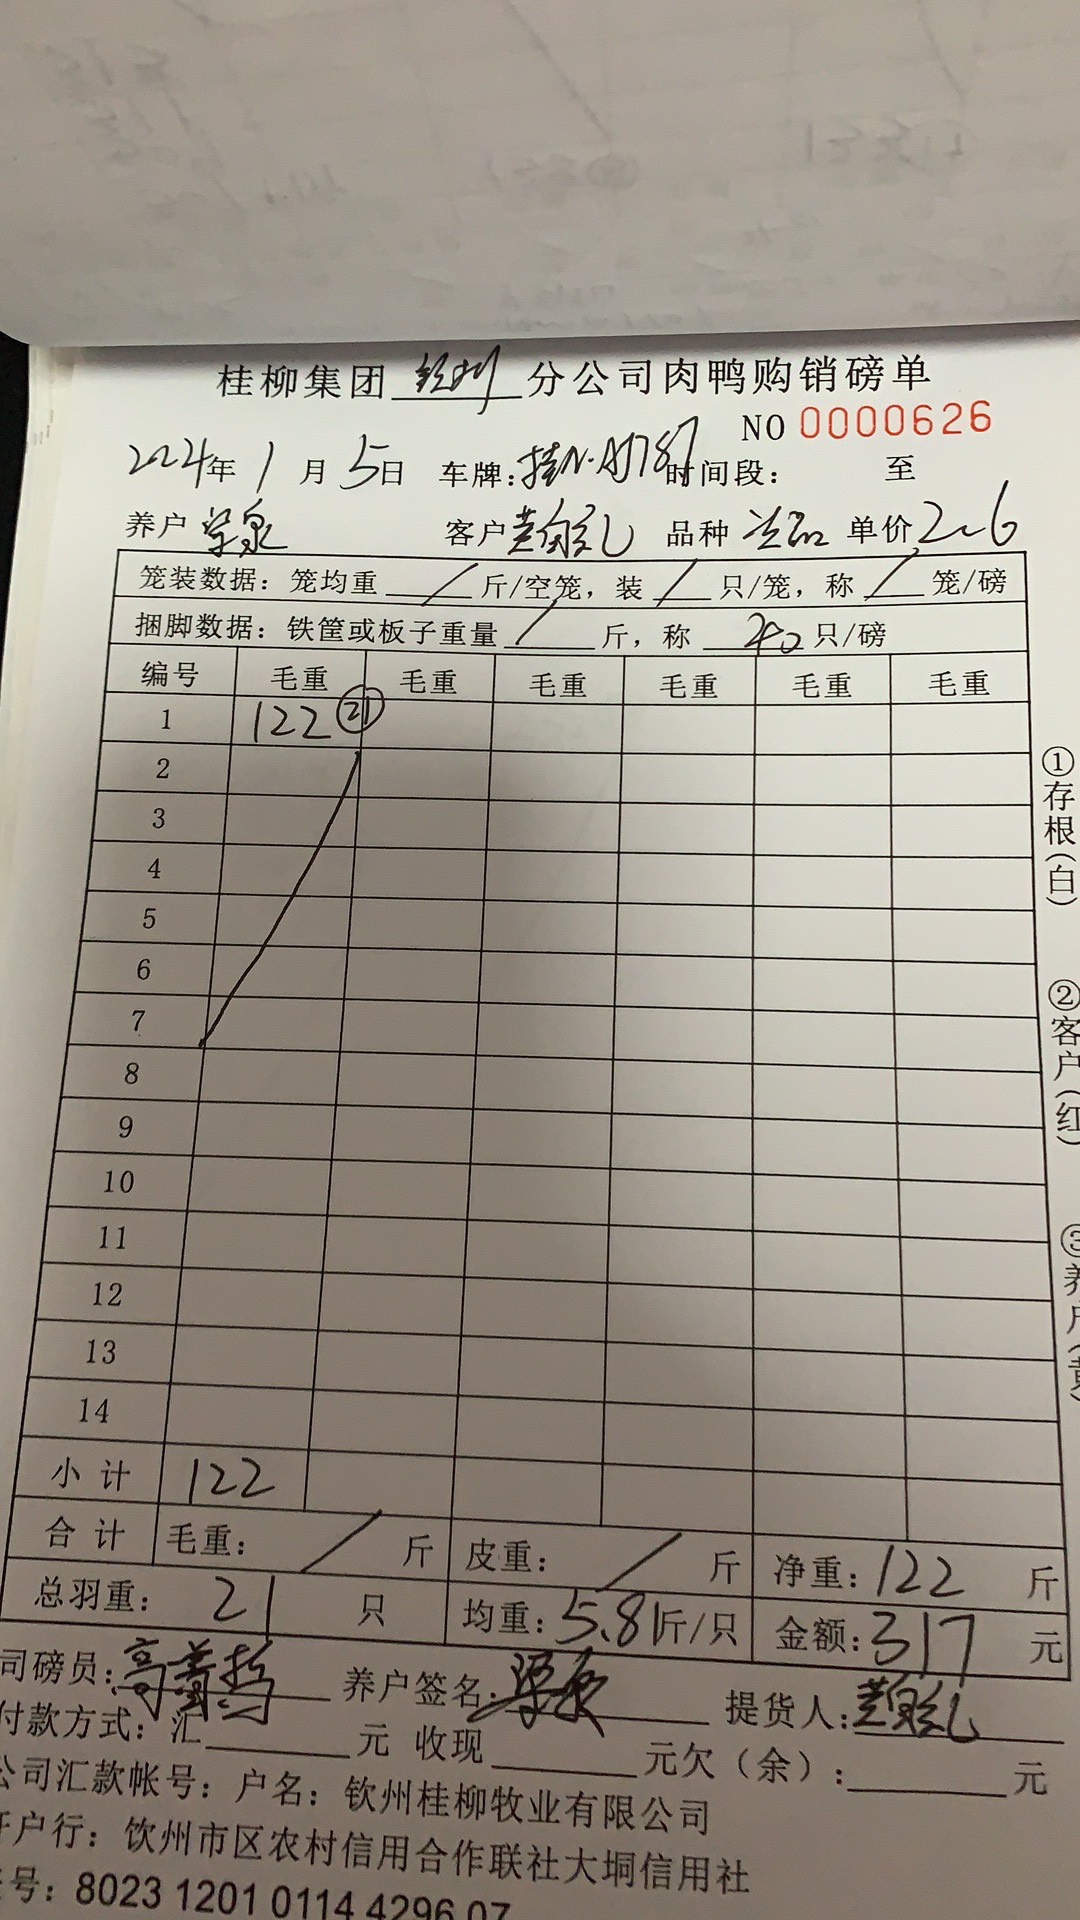 桂柳集团 钦州 分公司肉鸭购销磅单
NO 0000626
2024年 1 月 5日 车牌:桂N·A1787 时间段: 至
养户 客户 黄 品种 次品 单价 2.6
笼装数据: 笼均重 / 斤/空笼, 装 / 只/笼, 称 / 笼/磅
捆脚数据: 铁筐或板子重量 / 斤, 称 20 只/磅
编号 毛重 毛重 毛重 毛重 毛重 毛重
1 122 21
2
3
4
5
6
7
8
9
10
11
12
13
14
小计 122
合计 毛重: / 斤 皮重: / 斤 净重: 122 斤
总羽重: 21 只 均重: 5.81斤/只 金额: 317 元
司磅员: 高 养户签名: 提货人: 黄
付款方式: 汇 元 收现 元欠(余): 元
公司汇款帐号: 户名: 钦州桂柳牧业有限公司
开户行: 钦州市区农村信用合作联社大垌信用社
号: 8023 1201 0114 4296 07
①存根(白)
②客户(红)
③养户(黄)